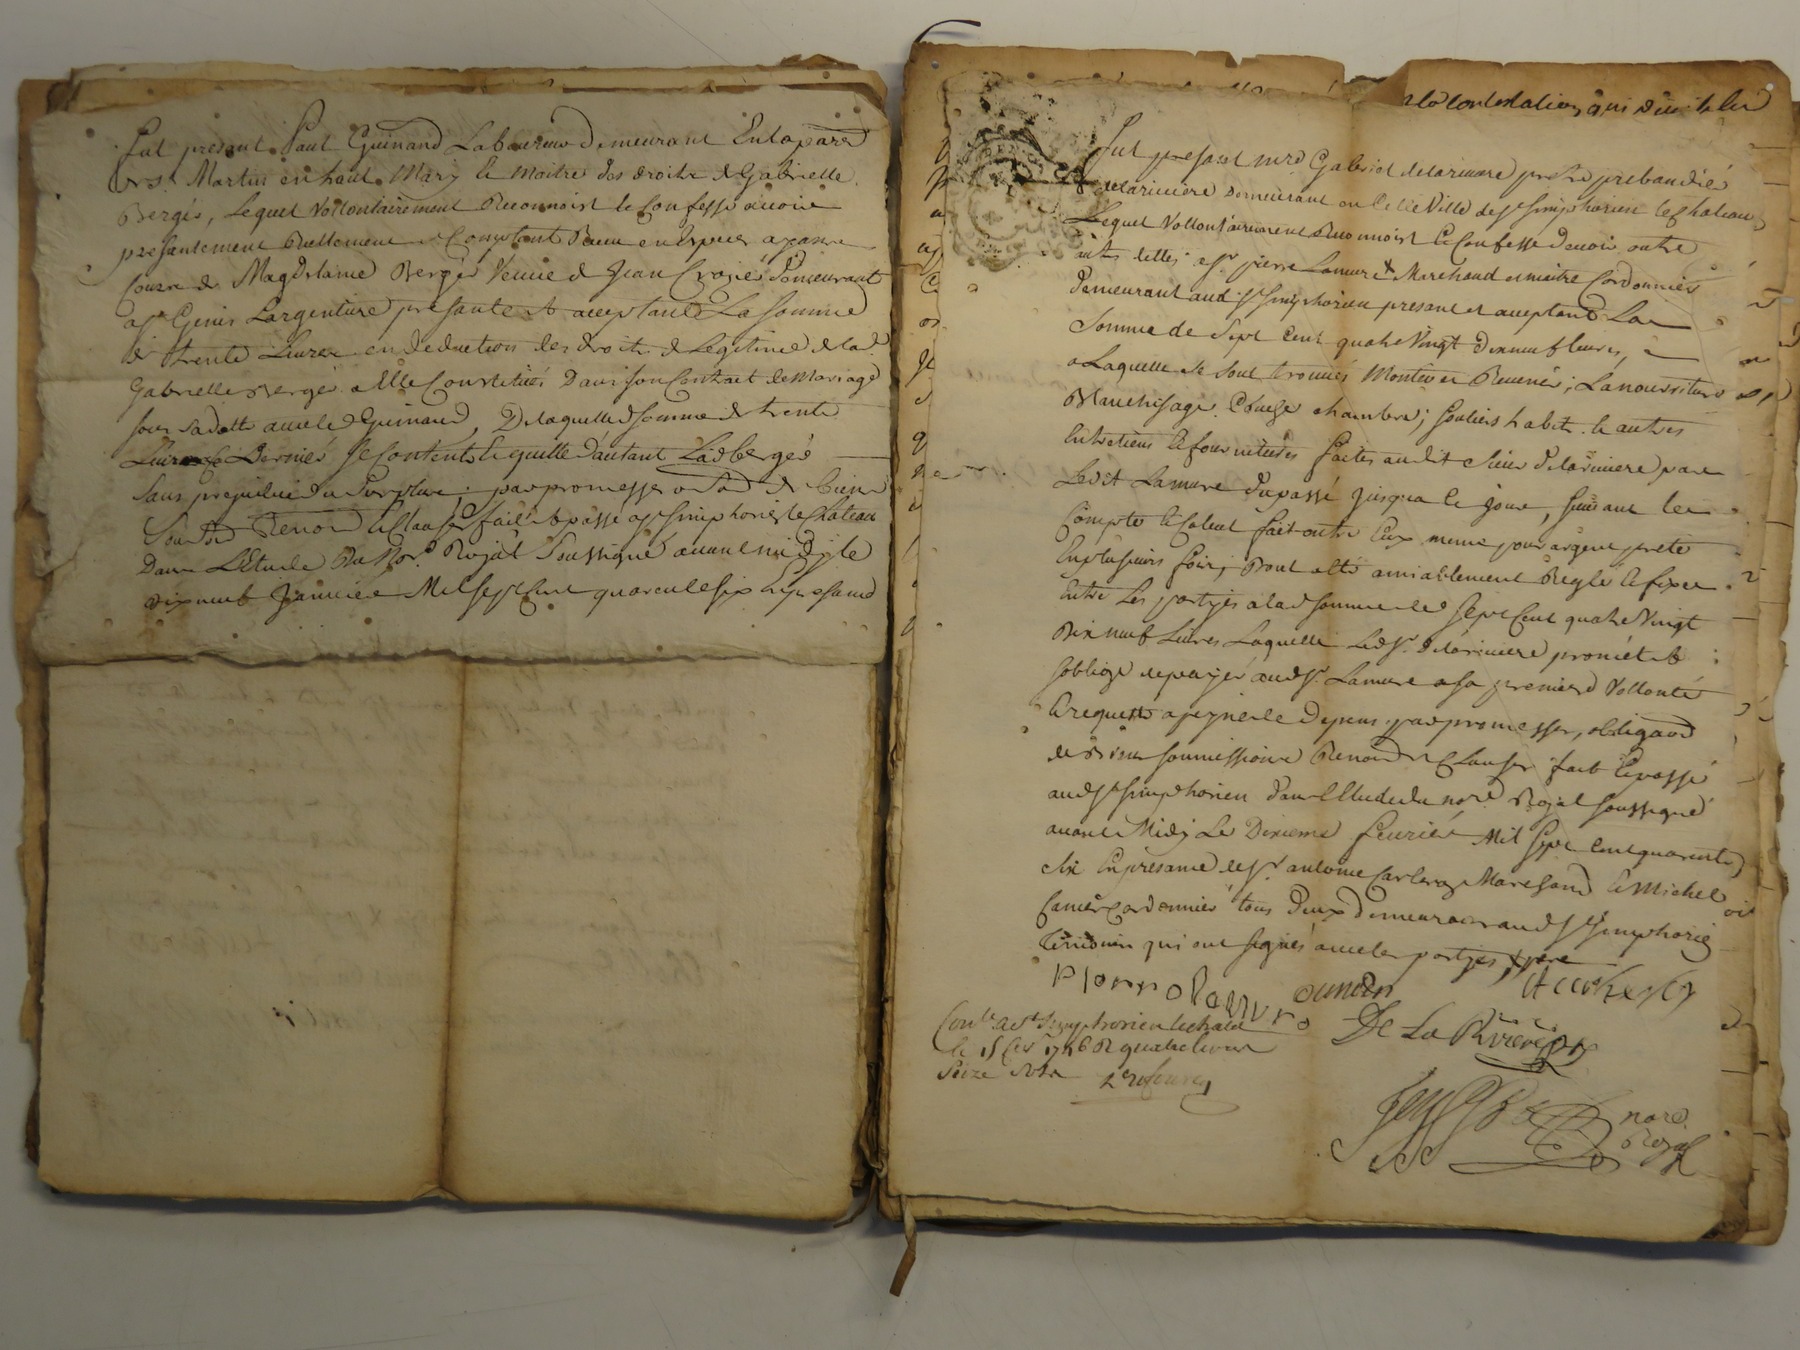 Fut present Paul Guinand Laboureur demeurant En la parr.
de St. Martin en haut Mary & maitre des droits de Gabrielle
Bergér, Lequel Vollontairement Reconnoist & Confesse avoir
presentement Reellement & Comptant Receu en Especes ayant
Cours de Magdelaine Berger Veuve de Jean Crozier Demeurant
a St. Genis Largentiere presente & acceptant La somme
de trente Livres en deduction des droits de Legitime de lad.
Gabrielle Berger a Elle Constitués Dans son Contract de Mariage
avec led. Guinand, De laquelle somme de trente
Livres Ce Dernier se Contente & quitte d'autant Lad. bergér
sans prejudice du Surplus; par promesses
Renon. & Clauses fait & passé a St. Simphorien le Chateau
Dans L'Etude du No.re Royal Soussigné avant midy le
dix neuf Janvier Mil sept Cent quarente six En presance
a la Contestation qui
Fut present mre. Gabriel delariviere pretre prebandié
delariviere demeurant en Cette Ville de St. Simphorien le Chateau,
Lequel Vollontairement Reconnoist & Confesse devoir outre
a Sr. pierre Lamure Marchand & maitre Cordonnier
Demeurant aud. St. Simphorien present et acceptant La
Somme de Sept Cent quatre Vingt Dix neuf livres,
a Laquelle se sont trouvés Montér et Revenir, La nourriture
Blanchisage Couche chambre, souliers habits & autres
Entretiens & fournitures faites audit Sieur Delariviere par
Ledit Lamure Du passé Jusqua Ce Jour, suivant le
Compte & Calcul fait entre Eux meme pour argent preté
En plusieurs fois, Dont a Eté amiablement Reglé & fixé
Entre Les partyes a lad. somme de sept Cent quatre Vingt
Dix neuf Livres Laquelle Led. Sr. Delariviere promét &
soblige de payér aud. Sr. Lamure a sa premiere Vollonté
& requette a peyne de Depens par promesses, obligaon
de Biens soumissions Renon. & Clauses fait & passé
aud. St. Simphorien dans L'Etude du nore. Royal soussigné
avant Midy Le Dixieme fevriér Mil sept Cent quarente
six En presance de Sr. antoine Marchand & Michel
Cordonnier tous Deux demeurants aud. St. Simphorien
témoins qui ont signés avec les partyes
De La Riviere
Conlle. a St. Simphorien le chatel
le 15 fev. 1746 R quatre livres
Seize sols
nore.
Royal